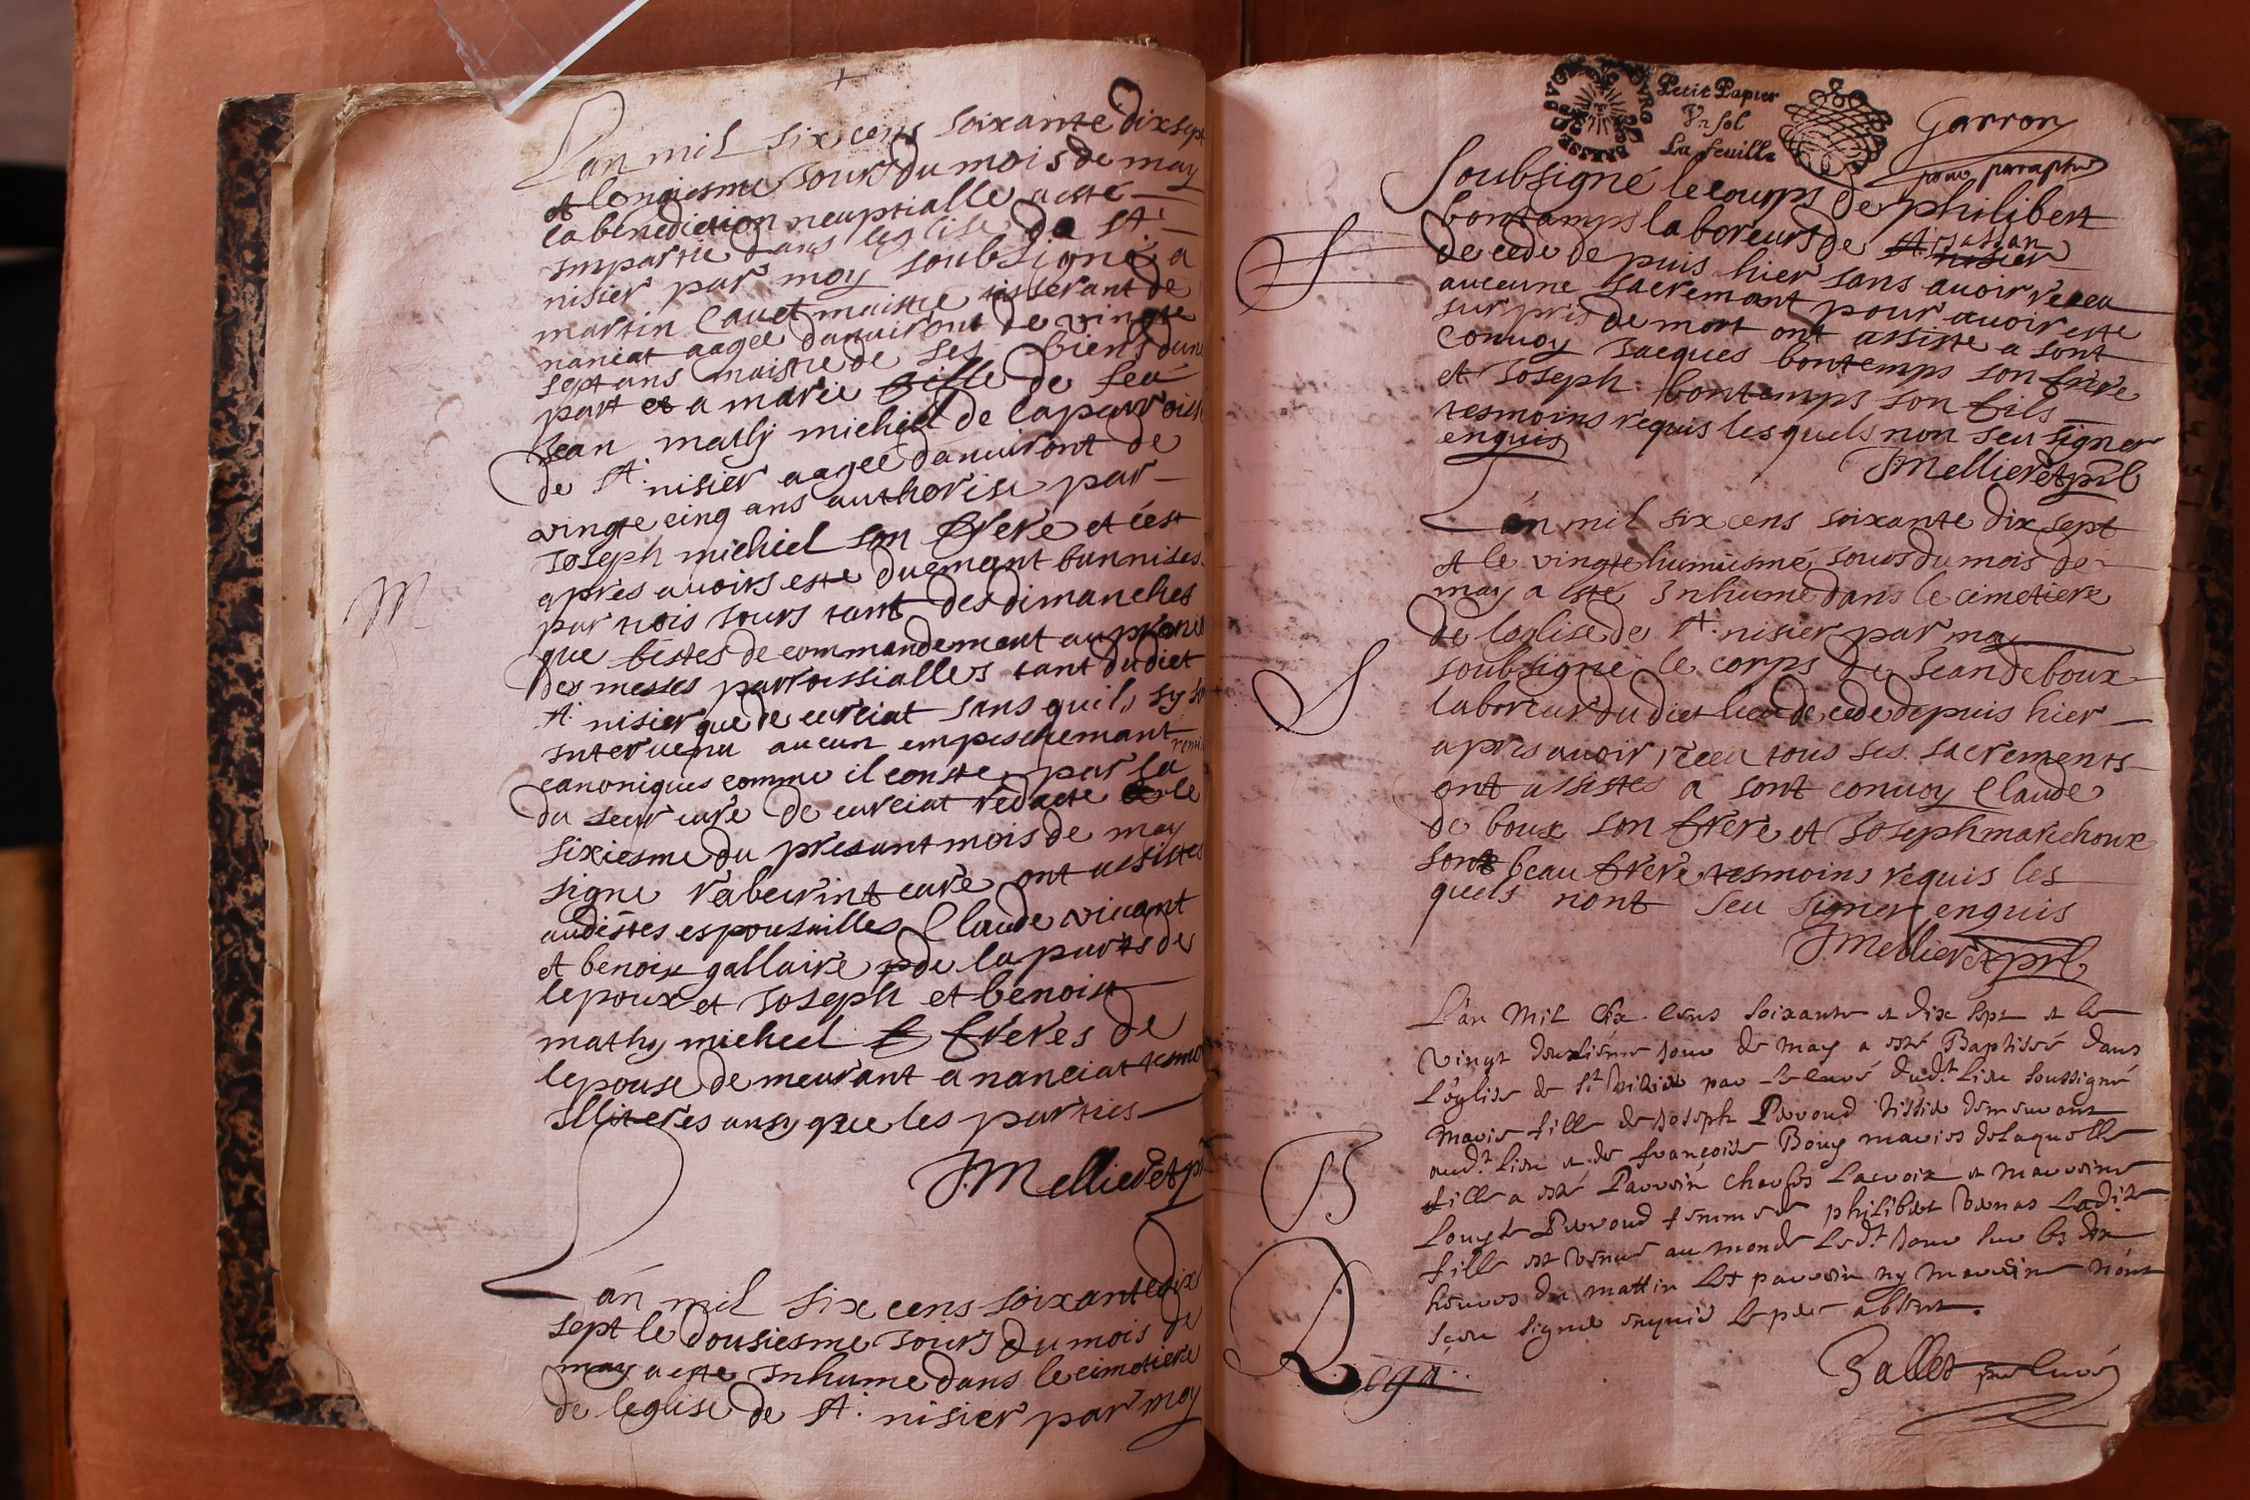 L'an mil six cens soixante dix sept
et lonziesme Jour du mois de may
la benediction neuptialle a esté
Impartie dans leglise de St.
nisier par moy soubsigné a
martin Cauet maistre tisserant de
nanciat aagee danuiront de vingte
sept ans maistre de ses biens dune
part et a marie fille de feu
Jean mathy michiel de la parroisse
de St. nisier aagee danuiront de
vingte cinq ans authorise par
Joseph michiel son frere et cest
apres auoirs este duemant bannises
par trois Jours tant des dimanches
que festes de commandement au prone
des messes parroissialles tant dudict
St. nisier que de curciat sans quil sy so
Interuenu aucun empeschemant
canoniques comme il conste par la remi
du seur curé de curciat redacte le
sixiesme du presant mois de may
signe curé ont assistes
audistes espousailles Claude viuant
et benoix gallaire de la parts de
lepoux et Joseph et benoist
mathy micheel freres de
lepouse demeurant a nanciat tesmo
Illiteres ansy que les parties
J. Mellier et p
M
Lan mil six cens soixante dix
sept le dousiesme Jours du mois de
may a este Inhume dans le cimetiere
de leglise de St. nisier par moy
Petit Papier
Vn sol
La feuille
Garron
pour paraphe
soubsigné le courps de philibert
bontamps laboreurs de St. nisier
decede de puis hier sans auoir receu
aucune sacremant pour auoir este
surpris de mort ont assiste a sont
conuoy Jacques bontemps son frere
et Joseph bontemps son fils
tesmoins requis lesquels non seu signer
enquis
J Mellier et
S
Lan mil six cens soixante dix sept
et le vingte huniesme Jours du mois de
may a este Inhume dans le cimetiere
de leglise de St. nisier par moy
soubsigne le corps de Jean deboux
laboreur dudict lieu decede depuis hier
apres auoir receu tous ses sacrements
ont assistes a sont conuoy Claude
de boux son frere et Joseph marechoux
sont beau frere tesmoins requis les
quels nont seu signer enquis
J. Mellier et
S
L'an Mil Six Cens Soixante et dix Sept et le
vingt deuxiéme Jour de may a esté Baptisée dans
L'église de St Nisier par le Curé dudt lieu soussigné
Marie fille de Joseph Peroud tissier demeurant
audt lieu et de françoise Bouy mariés de laquelle
fille a esté Parrein Charles Lacroix et Marreine
Louyse Perroud femme de philibert Ladite
fille est venue au monde Ledt Jour Sur les dix
heures du mattin Les parrein ny marreine n'ont
sçeu signer enquis Le pere absent.
B
Gallet curé